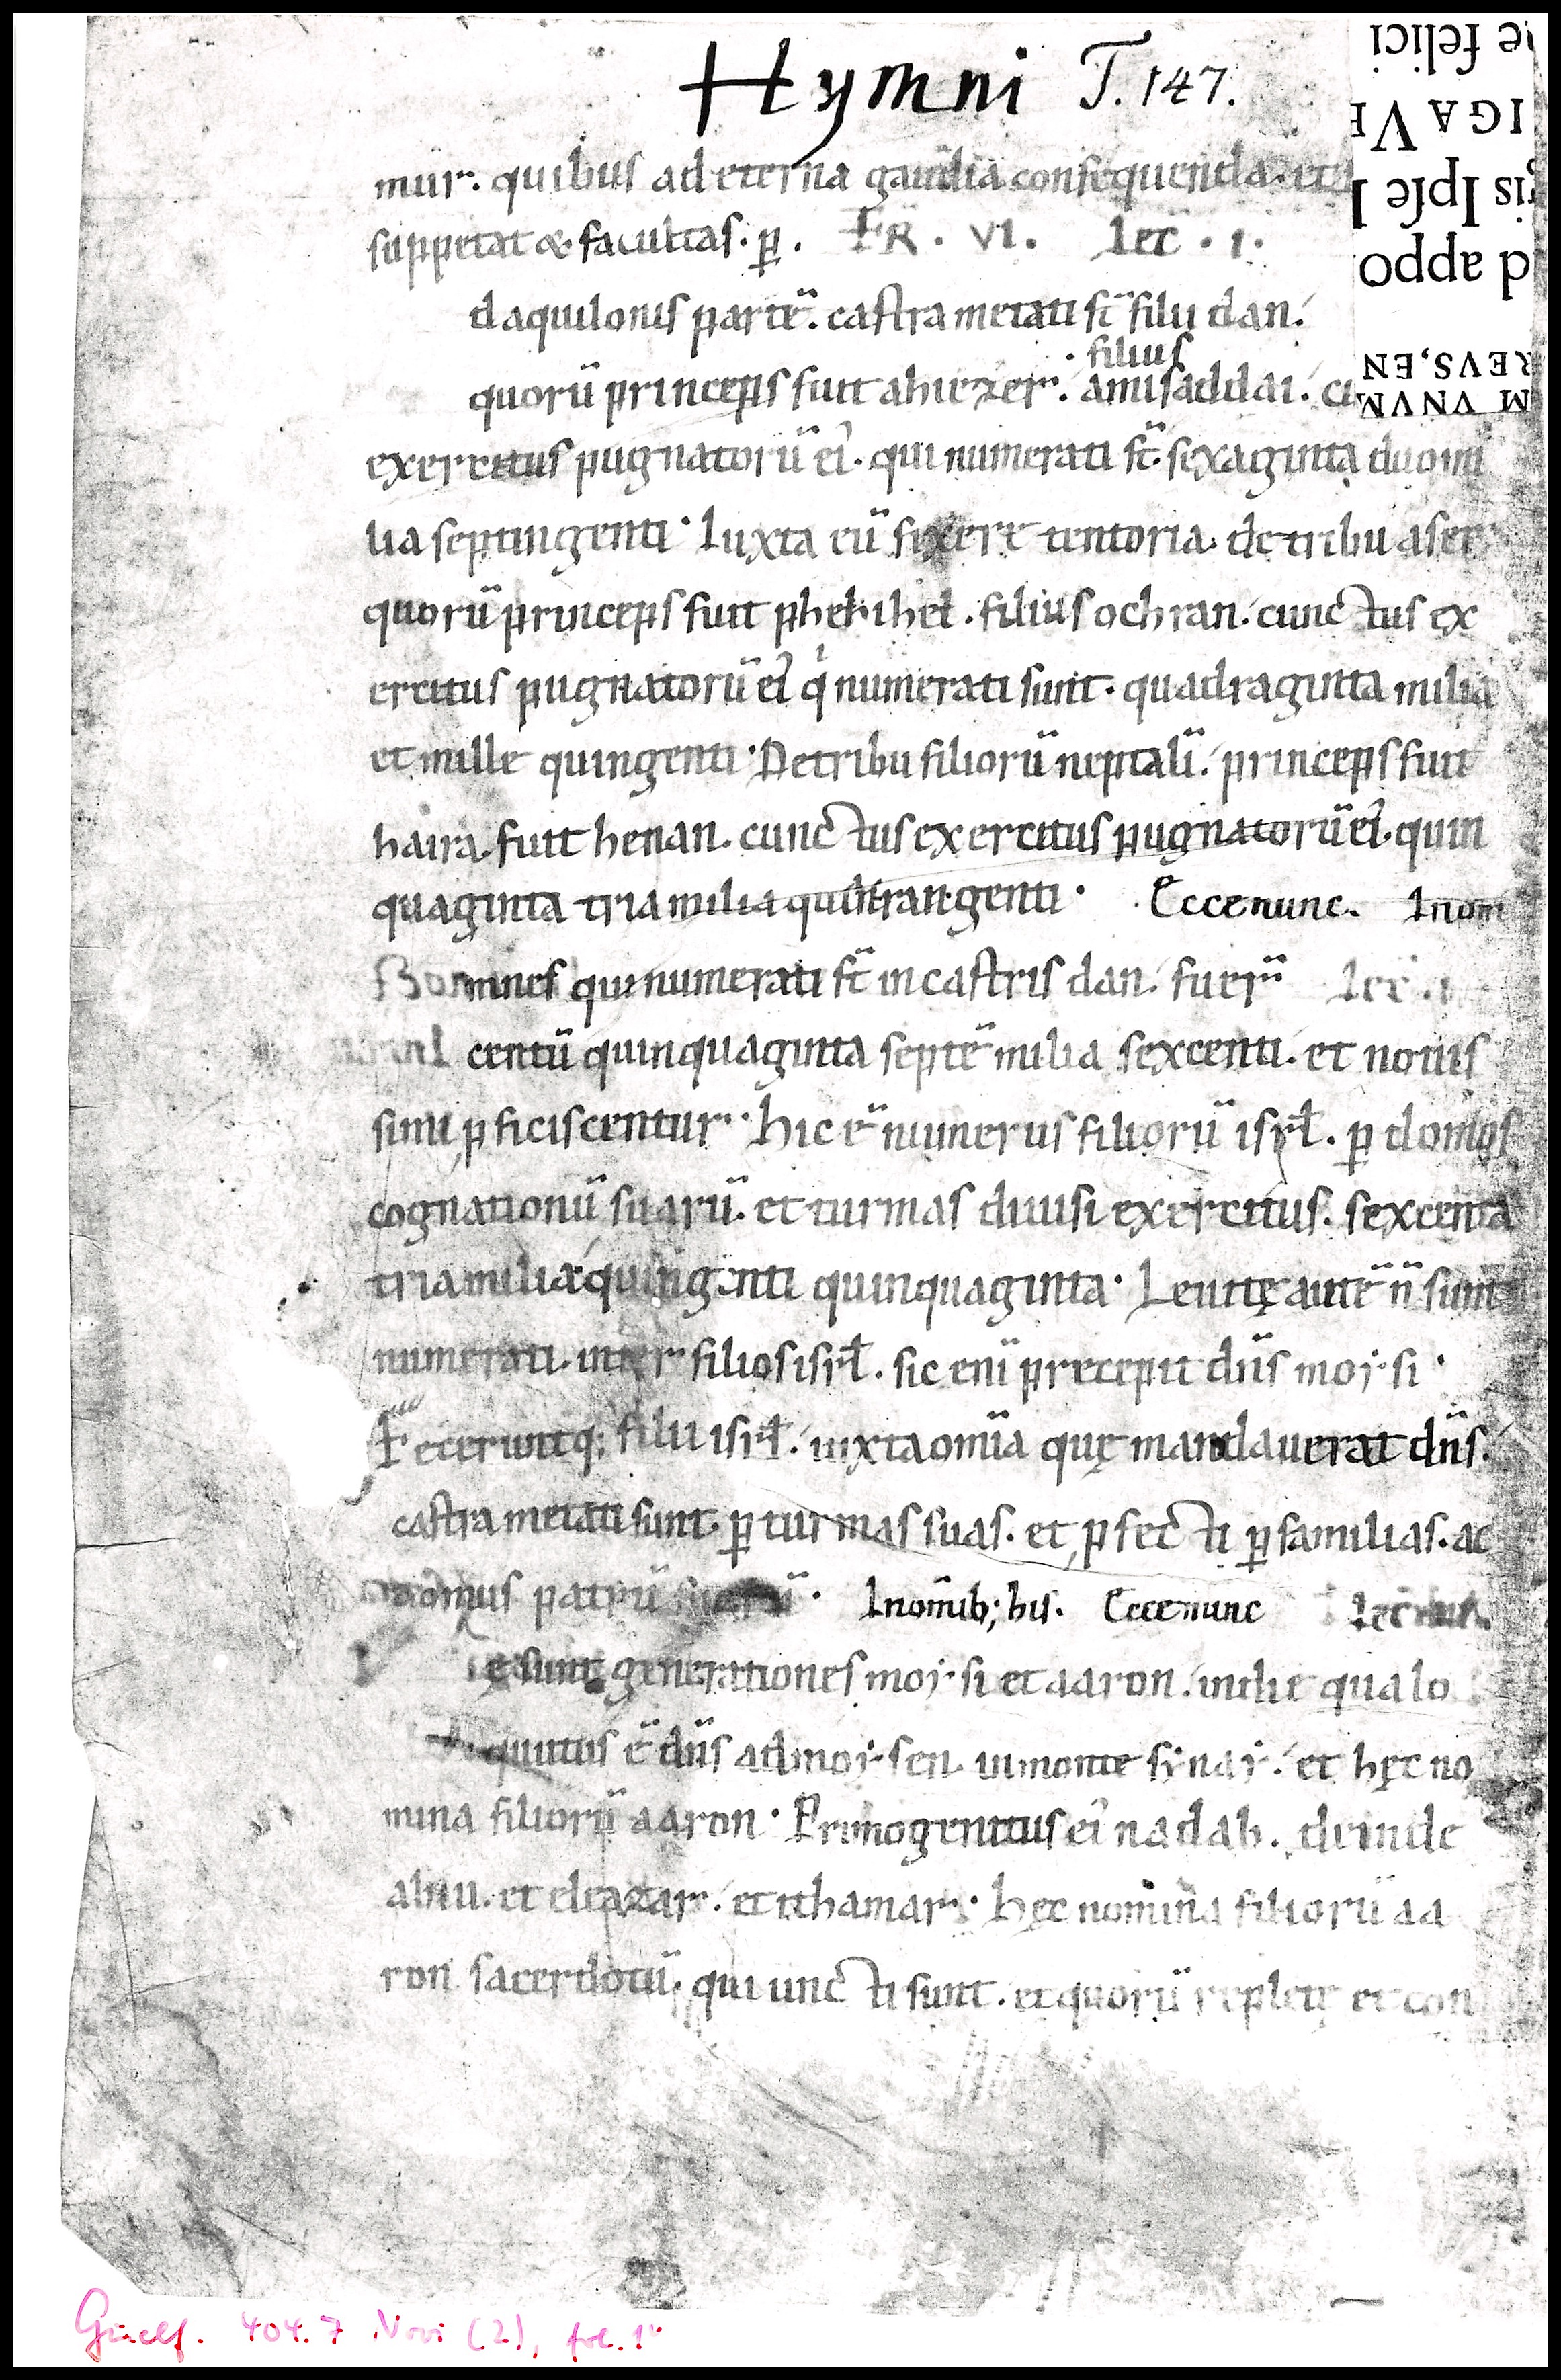 Hymni T. 147.
mur. quibus ad eterna gaudia consequenda. et
suppetat & facultas. p̲. FR. VI. lec̄. 1.
d aquilonis partē. castra metati st̄ filii dan.
filius
quorū princeps fuit ahiezer. amisaddai. cu
exercitus pugnatorū ei᾽. qui numerati st̄. sexaginta duo mi
lia septingenti. Iuxta eū fixere tentoria. de tribu aser
quorū princeps fuit phekihel. filius ochran. cunctus ex
ercitus pugnatorū ei᾽ qͥ numerati sunt. quadraginta milia
et mille quingenti. De tribu filiorū neptalī. princeps fuit
haira. fuit henan. cunctus exercitus pugnatorū ei᾽. quin
quaginta tria milia quadrangenti. Ecce nunc. In om
omnes qui numerati st̄ in castris dan. fuer̄ lec̄.
centū quinquaginta septē milia sexcenti. et nouis
simi p̲ficiscentur. Hic ē numerus filiorū isrl̄. p̲ domos
cognationū suarū. et turmas diuisi exercitus. sexcenta
tria milia quingenti quinquaginta. Leuitę autē n̄ sunt
numerati. inter filios isrl̄. sic eni̅ precepit dn̄s moysi.
Feceruntq; filii isrl̄. iuxta om̄ia quę mandauerat dn̄s.
castra metati sunt. p̲ turmas suas. et p̲fecti p̲ familias. ac
domus patrū suarū. In om̄ib; his. Ecce nunc lec̄
ę sunt generationes moysi et aaron. in die qua lo
quutus ē dn̄s ad moysen. in monte synay. et hęc no
mina filiorū aaron. Primogenitus ei᾽ nadab. deinde
abiu. et eleazar. et ithamar. Hęc nomina filiorū aa
ron sacerdotū. qui uncti sunt. et quorū repletę et con
Guelf. 404.7 Novi (2), fol. 1v
e felici
IGA VE
gis Ipſe
d appo
REVS, EN
M VNVM